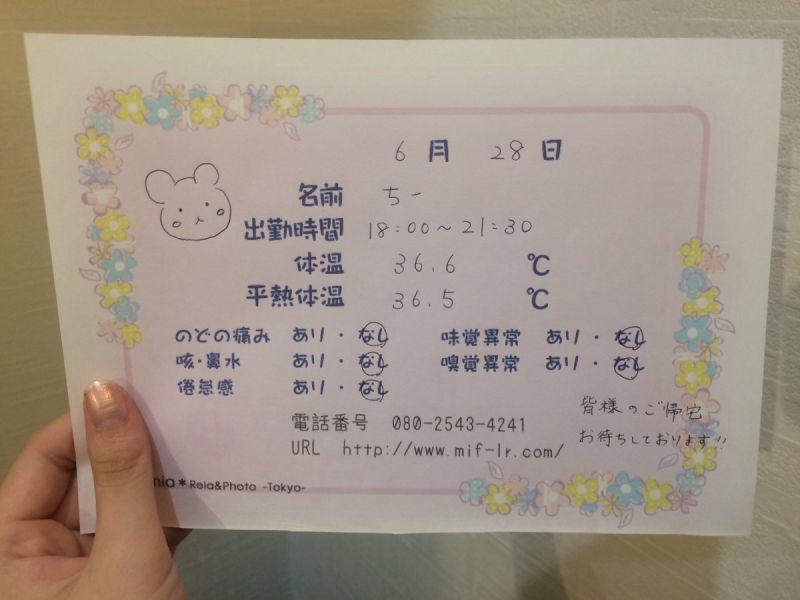 6月 28日
名前 ちー
出勤時間 18:00〜21:30
体温 36.6 ℃
平熱体温 36.5 ℃
のどの痛み あり・なし 味覚異常 あり・なし
咳・鼻水 あり・なし 嗅覚異常 あり・なし
倦怠感 あり・なし
皆様のご帰宅
お待ちしております!!
電話番号 080-2543-4241
URL http://www.mif-lr.com/
nia*Rela&Photo -Tokyo-